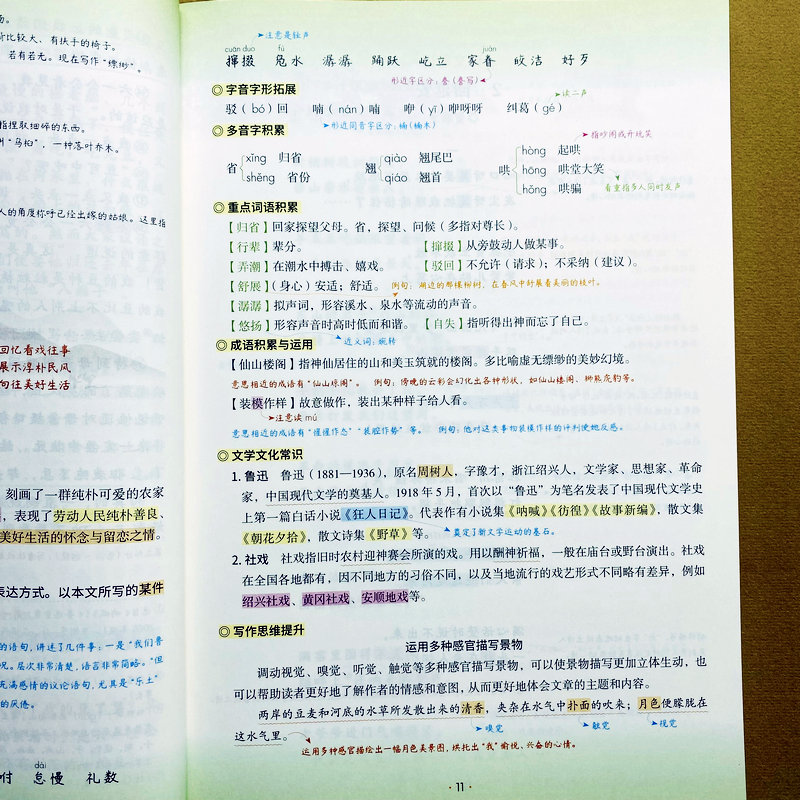 场。
可比较大、有扶手的椅子。
若有若无。现在写作“缥缈”。
指捏取细碎的东西。
“乌桕”，一种落叶乔木。
人的角度称呼已经出嫁的姑娘。这里指
回忆看戏往事
展示淳朴民风
向往美好生活
刻画了一群纯朴可爱的农家
，表现了劳动人民纯朴善良、
美好生活的怀念与留恋之情。
表达方式。以本文所写的某件
的语句，讲述了几件事：一是“我们鲁
况。层次非常清楚，语言非常简略。“但
充满感情的议论语句，尤其是“乐土”
的厌倦。
dài
付 怠慢 礼数
注意是轻声
cuān duo fú juàn
撺掇 凫水 潺潺 踊跃 屹立 家眷 皎洁 好歹
形近字区分：叠（叠写）
字音字形拓展
读二声
驳（bó）回 喃（nán）喃 咿（yī）咿呀呀 纠葛（gé）
形近同音字区分：楠（楠木）
多音字积累
指吵闹或开玩笑
省 xǐng 归省 shěng 省份
翘 qiào 翘尾巴 qiáo 翘首
哄 hòng 起哄 hōng 哄堂大笑 hǒng 哄骗
着重指多人同时发声
重点词语积累
【归省】回家探望父母。省，探望、问候（多指对尊长）。
【行辈】辈分。 【撺掇】从旁鼓动人做某事。
【弄潮】在潮水中搏击、嬉戏。 【驳回】不允许（请求）；不采纳（建议）。
【舒展】（身心）安适；舒适。 例句：湖边的那棵柳树，在春风中舒展着美丽的枝叶。
【潺潺】拟声词，形容溪水、泉水等流动的声音。
【悠扬】形容声音时高时低而和谐。 【自失】指听得出神而忘了自己。
近义词：婉转
成语积累与运用
【仙山楼阁】指神仙居住的山和美玉筑就的楼阁。多比喻虚无缥缈的美妙幻境。
意思相近的成语有“仙山琼阁”。 例句：傍晚的云彩会幻化出各种形状，如仙山楼阁、狮熊虎豹等。
【装模作样】故意做作，装出某种样子给人看。
注意读 mú
意思相近的成语有“惺惺作态”“装腔作势”等。 例句：他对这类事物装模作样的评判使她反感。
文学文化常识
1. 鲁迅 鲁迅（1881—1936），原名周树人，字豫才，浙江绍兴人，文学家、思想家、革命
家，中国现代文学的奠基人。1918 年 5 月，首次以“鲁迅”为笔名发表了中国现代文学史
上第一篇白话小说《狂人日记》。代表作有小说集《呐喊》《彷徨》《故事新编》，散文集
《朝花夕拾》，散文诗集《野草》等。
奠定了新文学运动的基石。
2. 社戏 社戏指旧时农村迎神赛会所演的戏。用以酬神祈福，一般在庙台或野台演出。社戏
在全国各地都有，因不同地方的习俗不同，以及当地流行的戏艺形式不同略有差异，例如
绍兴社戏、黄冈社戏、安顺地戏等。
写作思维提升
运用多种感官描写景物
调动视觉、嗅觉、听觉、触觉等多种感官描写景物，可以使景物描写更加立体生动，也
可以帮助读者更好地了解作者的情感和意图，从而更好地体会文章的主题和内容。
两岸的豆麦和河底的水草所发散出来的清香，夹杂在水气中扑面的吹来；月色便朦胧在
嗅觉 触觉 视觉
这水气里。
运用多种感官描绘出一幅月色美景图，烘托出“我”愉悦、兴奋的心情。
· 11 ·